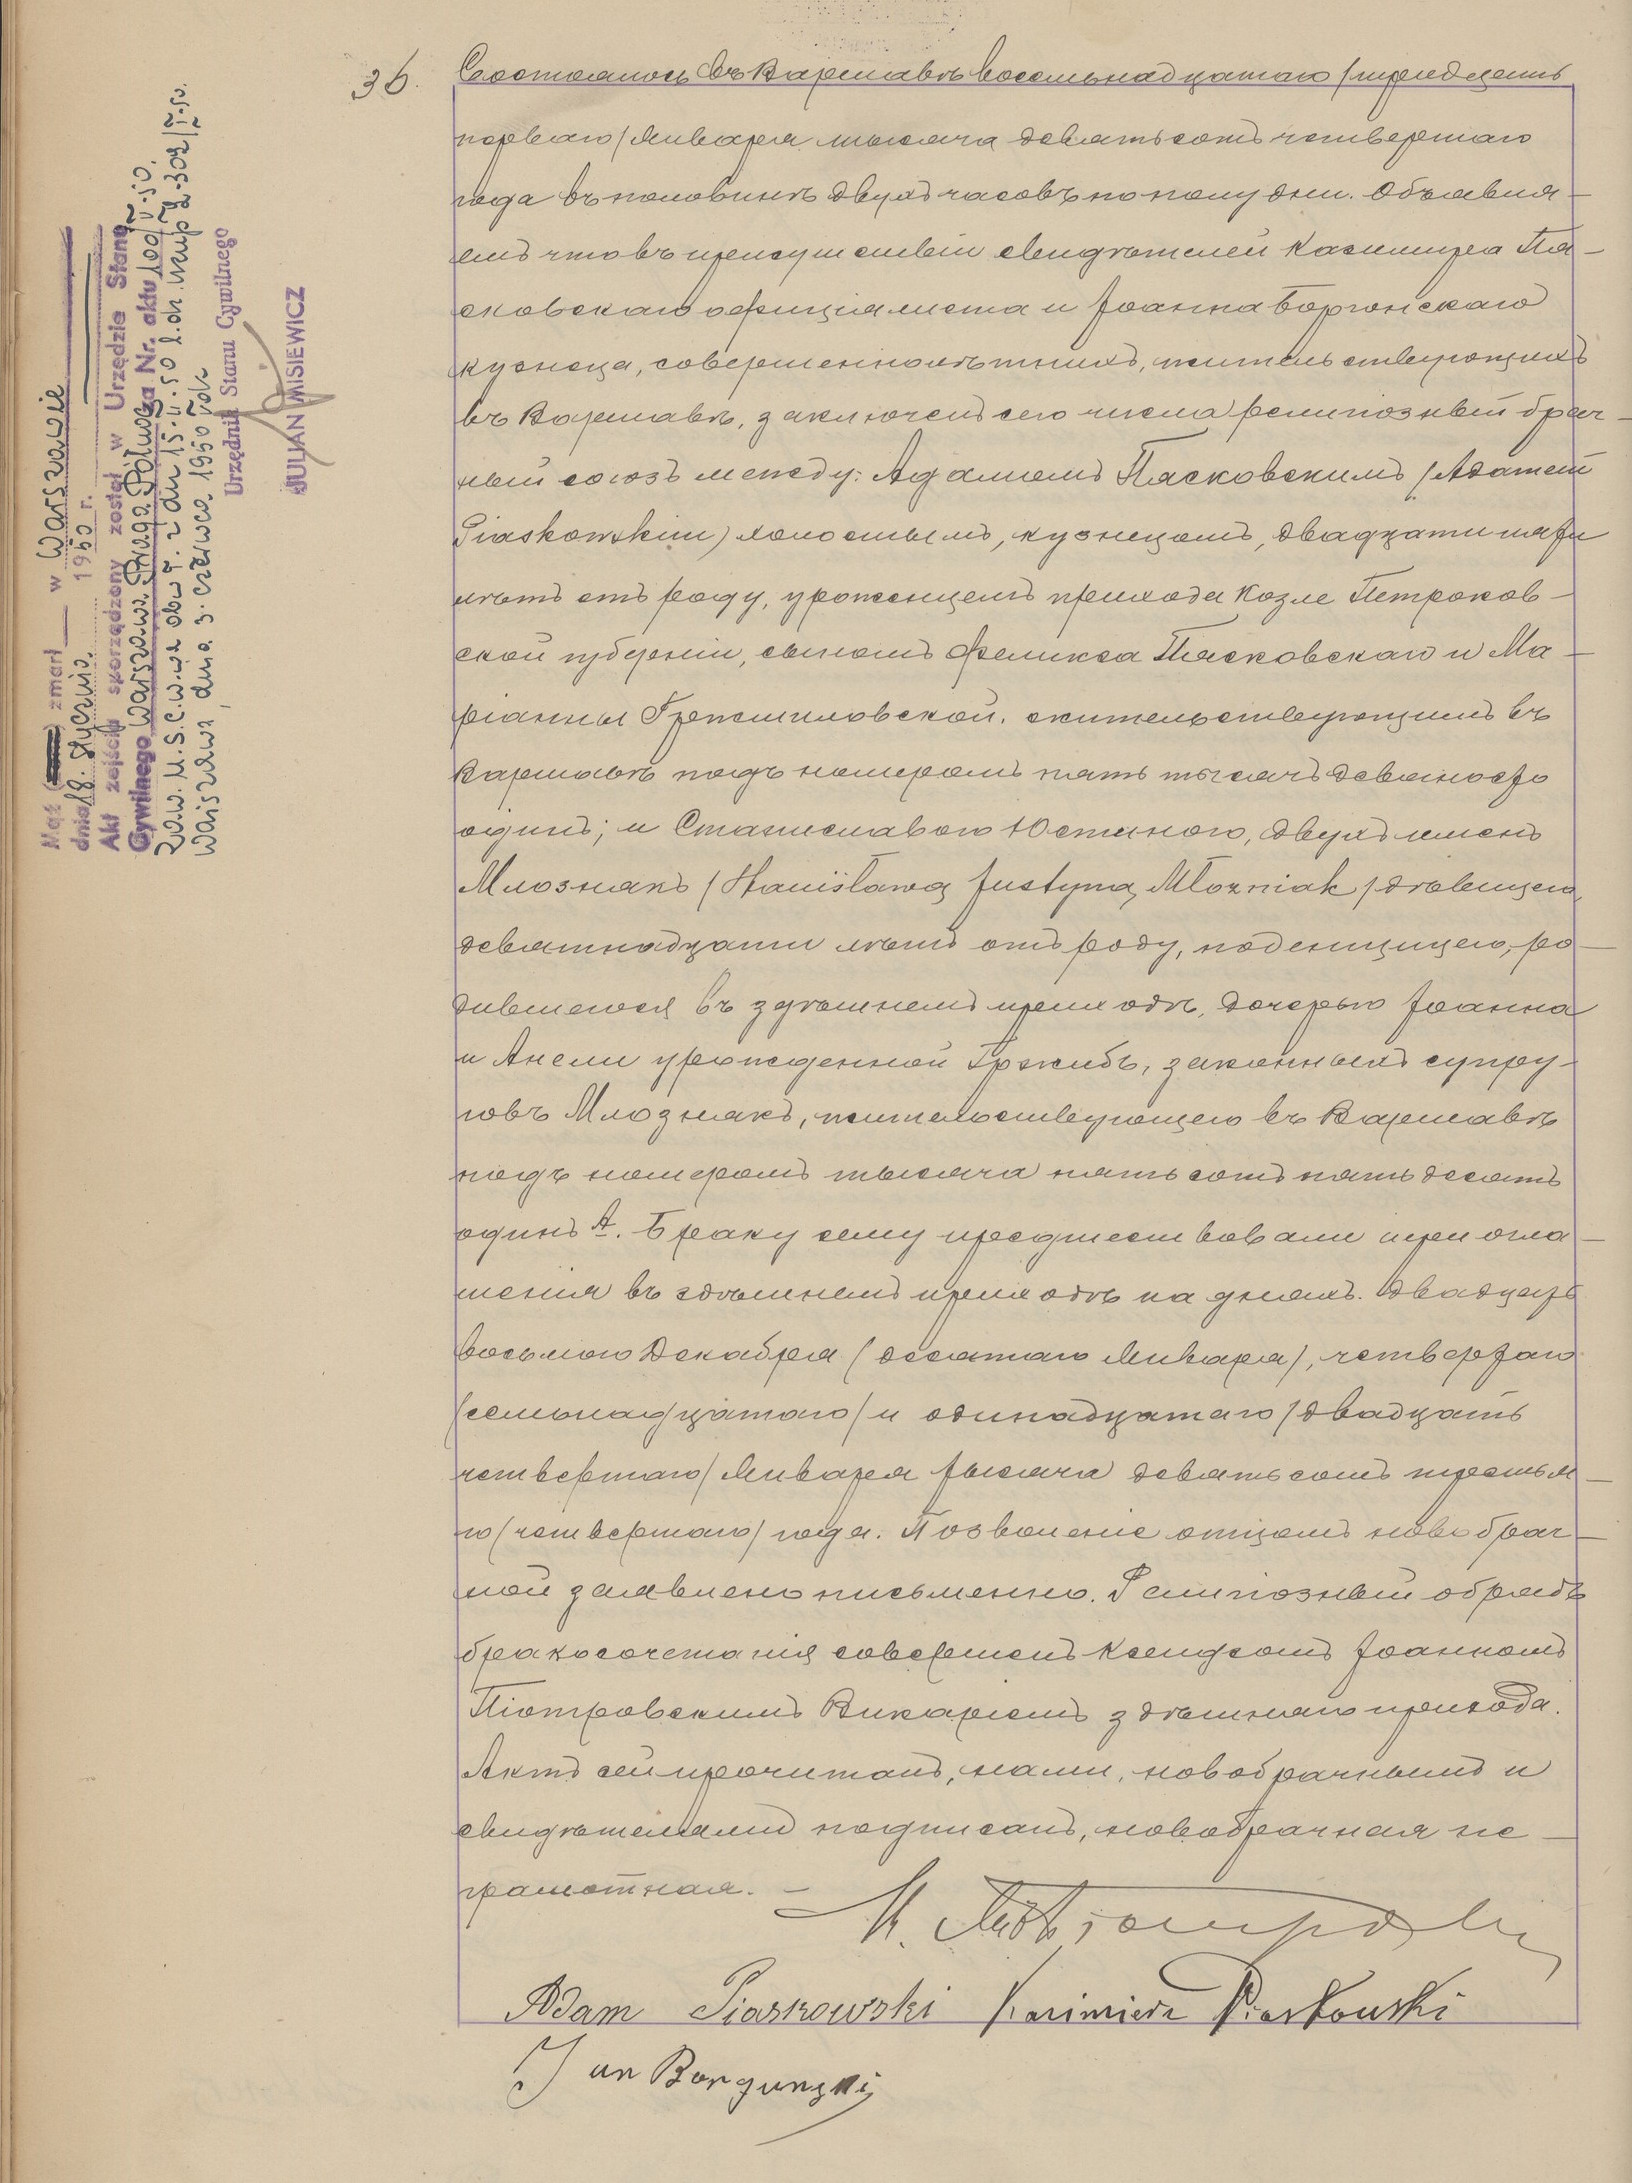 36.
Состоялось въ Варшавѣ восемьнадцатаго /тридцать
перваго/ Января тысяча девятьсотъ четвертаго
года въ половинѣ двухъ часовъ по полудни. Объявля-
емъ что въ присутствіи свидѣтелей Казимира Пя-
сковскаго официялиста и Іоанна Боргонскаго
кузнеца, совершеннолѣтнихъ, жительствующихъ
въ Варшавѣ, заключенъ сего числа религіозный брач-
ный союзъ между: Адамомъ Пясковскимъ /Adamem
Piaskowskim/ холостымъ, кузнецомъ, двадцати пяти
лѣтъ отъ роду, уроженцемъ прихода Козле Петроков-
ской губерніи, сыномъ Феликса Пясковскаго и Ма-
ріанны жительствующимъ въ
Варшавѣ подъ номеромъ пять тысячъ девяносто
одинъ; и Станиславою Юстиною, двухъ именъ
Млознякъ /Stanisławą Justyną Młozniak/ дѣвицею,
девятнадцати лѣтъ отъ роду, поденщицею, ро-
дившеюся въ здѣшнемъ приходѣ, дочерью Іоанна
и Анели урожденной Гржибъ, законныхъ супру-
говъ Млознякъ, жительствующею въ Варшавѣ
подъ номеромъ тысяча пятьсотъ пятьдесятъ
одинъ А. Браку сему предшествовали три огла-
шенія въ здѣшнемъ приходѣ на дняхъ. Двадцать
восьмого Декабря (десятаго Января), четвертаго
/семьнадцатаго/ и одинадцатаго /двадцать
четвертаго/ Января тысяча девятьсотъ третья-
го /четвертаго/ года. Позволеніе отцомъ новобрач-
ной заявлено письменно. Религіозный обрядъ
бракосочетанія совершенъ Ксендзомъ Іоанномъ
Піотровскимъ Викаріемъ здѣшняго прихода.
Актъ сей прочитанъ, нами, новобрачнымъ и
свидѣтелями подписанъ, новобрачная не-
грамотная. -
Adam Piaskowski Kazimierz Piaskowski
Jan Borgunski
Mąż zmarł w Warszawie
dnia 18. Stycznia. 1950 r.
Akt zejścia sporządzony został w Urzędzie Stanu
Cywilnego Warszawa Praga Północ za Nr. aktu 100/V-50.
Zaw. U.S.C.
Warszawa, dnia 3. czerwca 1950 rok
Urzędnik Stanu Cywilnego
JULIAN MISIEWICZ